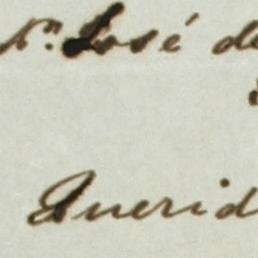 Sr. José de
Querid